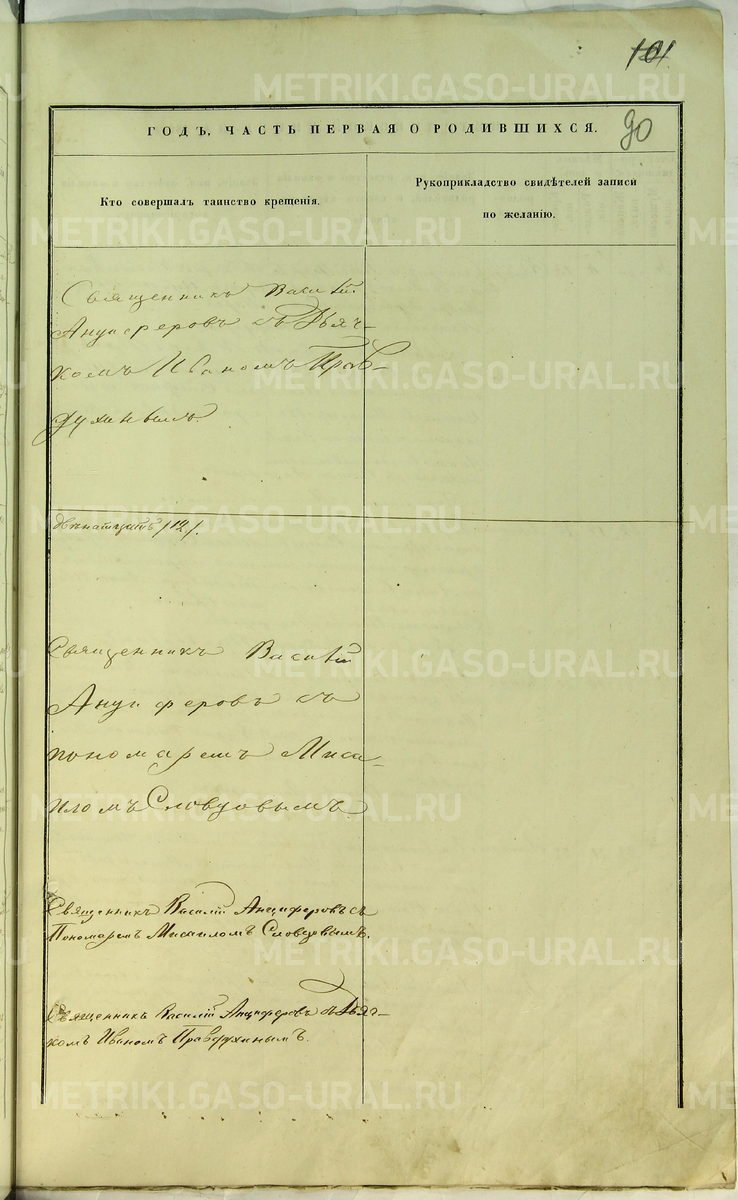 101
90
ГОДЪ, ЧАСТЬ ПЕРВАЯ О РОДИВШИХСЯ.
Кто совершалъ таинство крещенія.
Рукоприкладство свидѣтелей записи
по желанію.
Священникъ Василій
Анциферовъ съ Дьяч-
комъ Иваномъ Прав-
духинымъ.
двѣнатцать /12/.
Священникъ Василій
Анциферовъ съ
пономаремъ Миса-
иломъ Словцовымъ
Священникъ Василій Анциферовъ съ
Пономаремъ Мисаиломъ Словцовымъ.
Священникъ Василій Анциферовъ съ Дьяч-
комъ Иваномъ Правдухинымъ.
METRIKI.GASO-URAL.RU